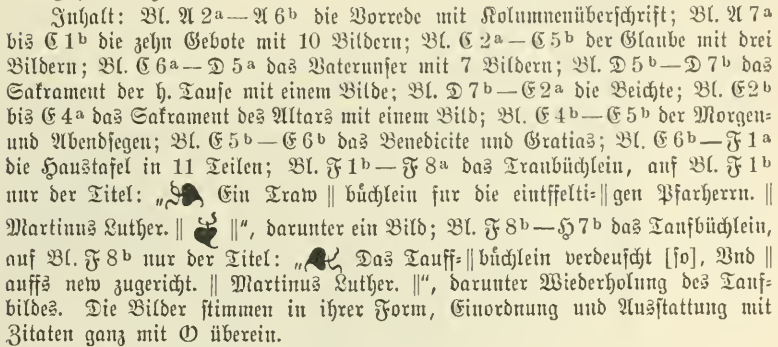 Inhalt: Bl. A 2a—A 6b die Vorrede mit Kolumnenüberschrift; Bl. A 7a
bis C 1b die zehn Gebote mit 10 Bildern; Bl. C 2a—C 5b der Glaube mit drei
Bildern; Bl. C 6a—D 5a das Vaterunser mit 7 Bildern; Bl. D 5b—D 7b das
Sakrament der h. Taufe mit einem Bilde; Bl. D 7b—E 2a die Beichte; Bl. E 2b
bis E 4a das Sakrament des Altars mit einem Bild; Bl. E 4b—E 5b der Morgen=
und Abendsegen; Bl. E 5b—E 6b das Benedicite und Gratias; Bl. E 6b—F 1a
die Haustafel in 11 Teilen; Bl. F 1b—F 8a das Traubüchlein, auf Bl. F 1b
nur der Titel: „❧ Ein Traw || büchlein fur die eintffelti= || gen Pfarherrn. ||
Martinus Luther. || ❧ ||“, darunter ein Bild; Bl. F 8b—H 7b das Taufbüchlein,
auf Bl. F 8b nur der Titel: „❧ Das Tauff= || büchlein verdeuscht [so], Vnd ||
auffs new zugericht. || Martinus Luther. ||“, darunter Wiederholung des Tauf=
bildes. Die Bilder stimmen in ihrer Form, Einordnung und Ausstattung mit
Zitaten ganz mit O überein.